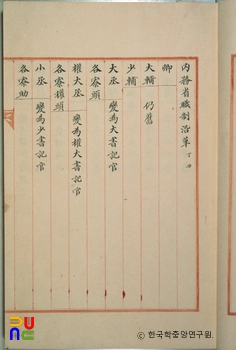 內務省職制沿革 丁丑
卿
大輔 仍舊
少輔
大丞 變爲大書記官
各寮頭
權大丞 變爲權大書記官
各寮權頭
小丞 變爲少書記官
各寮助
한국학중앙연구원